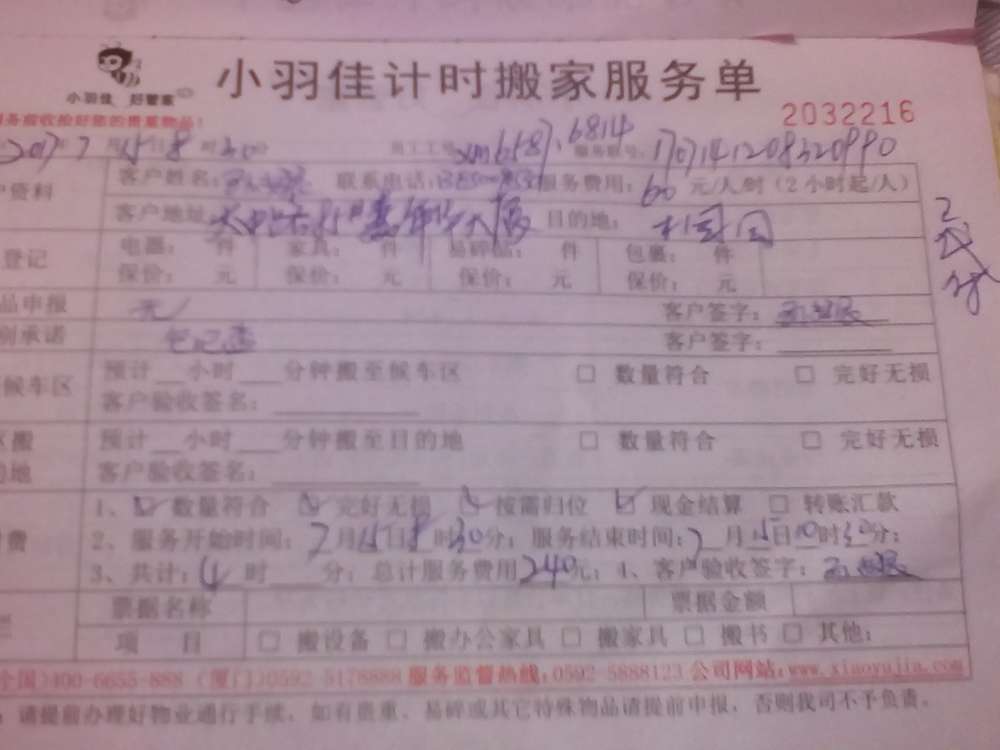 小羽佳计时搬家服务单
小羽佳 好管家
2032216
务前收捡好您的贵重物品!
2017年7月15日8时30分 员工工号: xm6587、6814 服务账号: 170714120832099
户资料 客户姓名: 联系电话: 服务费用: 60 元/人/时 (2小时起/人)
客户地址: 目的地:
登记 电器: 件 家具: 件 易碎品: 件 包裹: 件
保价: 元 保价: 元 保价: 元 保价: 元
品申报 无 客户签字:
别承诺 客户签字:
候车区 预计 小时 分钟搬至候车区 □ 数量符合 □ 完好无损
客户验收签名:
搬 预计 小时 分钟搬至目的地 □ 数量符合 □ 完好无损
的地 客户验收签名:
1、☑ 数量符合 ☑ 完好无损 ☑ 按需归位 ☑ 现金结算 □ 转账汇款
费 2、服务开始时间: 7月15日8时30分; 服务结束时间: 7月15日10时30分;
3、共计: 4时 分; 总计服务费用240元; 4、客户验收签字:
票据名称 票据金额
项 目 □ 搬设备 □ 搬办公家具 □ 搬家具 □ 搬书 □ 其他:
全国)400-6655-888 (厦门)0592-5178888 服务监督热线:0592-5888123 公司网站:www.xiaoyujia.com
: 请提前办理好物业通行手续, 如有贵重、易碎或其它特殊物品请提前申报, 否则我司不予负责。